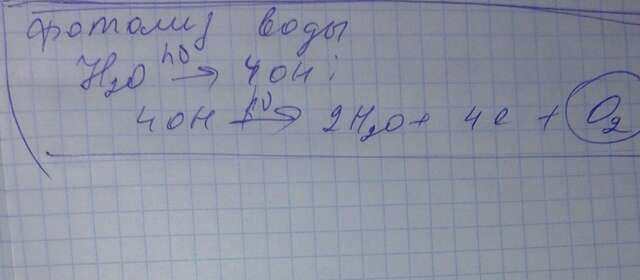 фотолиз воды
H₂O hν → 4OH;
4OH hν → 2H₂O + 4e + O₂